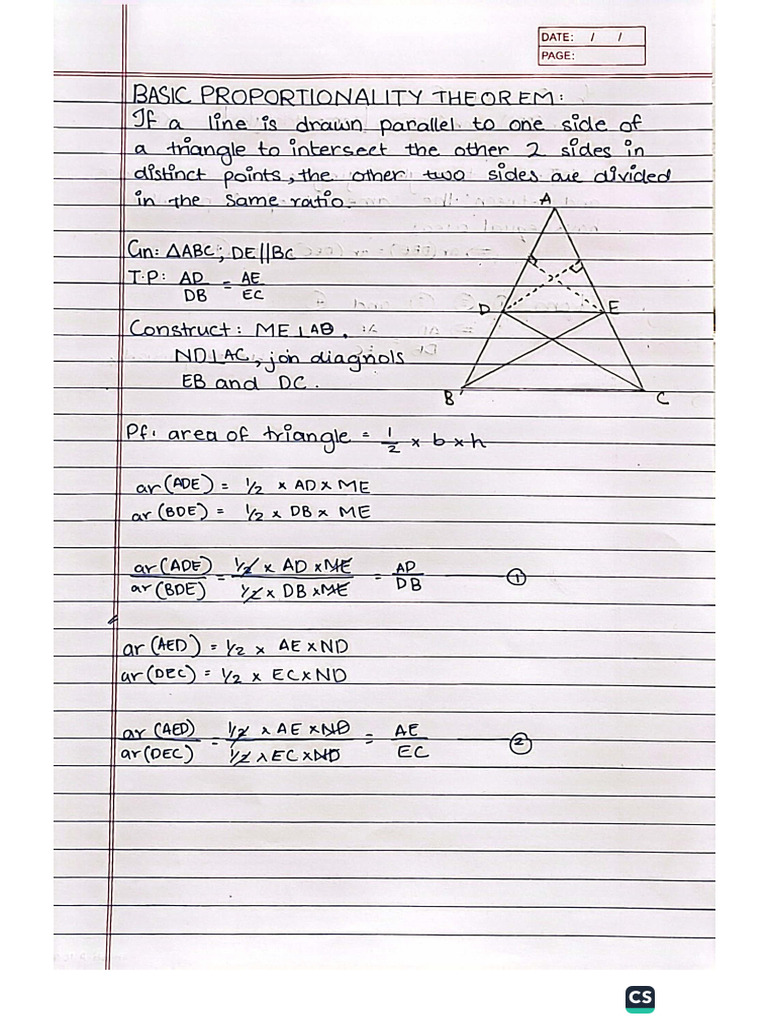 DATE: / /
PAGE:
BASIC PROPORTIONALITY THEOREM:
If a line is drawn parallel to one side of
a triangle to intersect the other 2 sides in
distinct points, the other two sides are divided
in the same ratio.
Gn: △ABC; DE||BC
T.P: AD/DB = AE/EC
Construct: ME⊥AB,
ND⊥AC, join diagnols
EB and DC.
A
D
E
B
C
Pf: area of triangle = 1/2 × b × h
ar(ADE) = 1/2 × AD × ME
ar(BDE) = 1/2 × DB × ME
ar(ADE)/ar(BDE) = 1/2 × AD × ME / 1/2 × DB × ME = AD/DB — ①
ar(AED) = 1/2 × AE × ND
ar(DEC) = 1/2 × EC × ND
ar(AED)/ar(DEC) = 1/2 × AE × ND / 1/2 × EC × ND = AE/EC — ②
CS